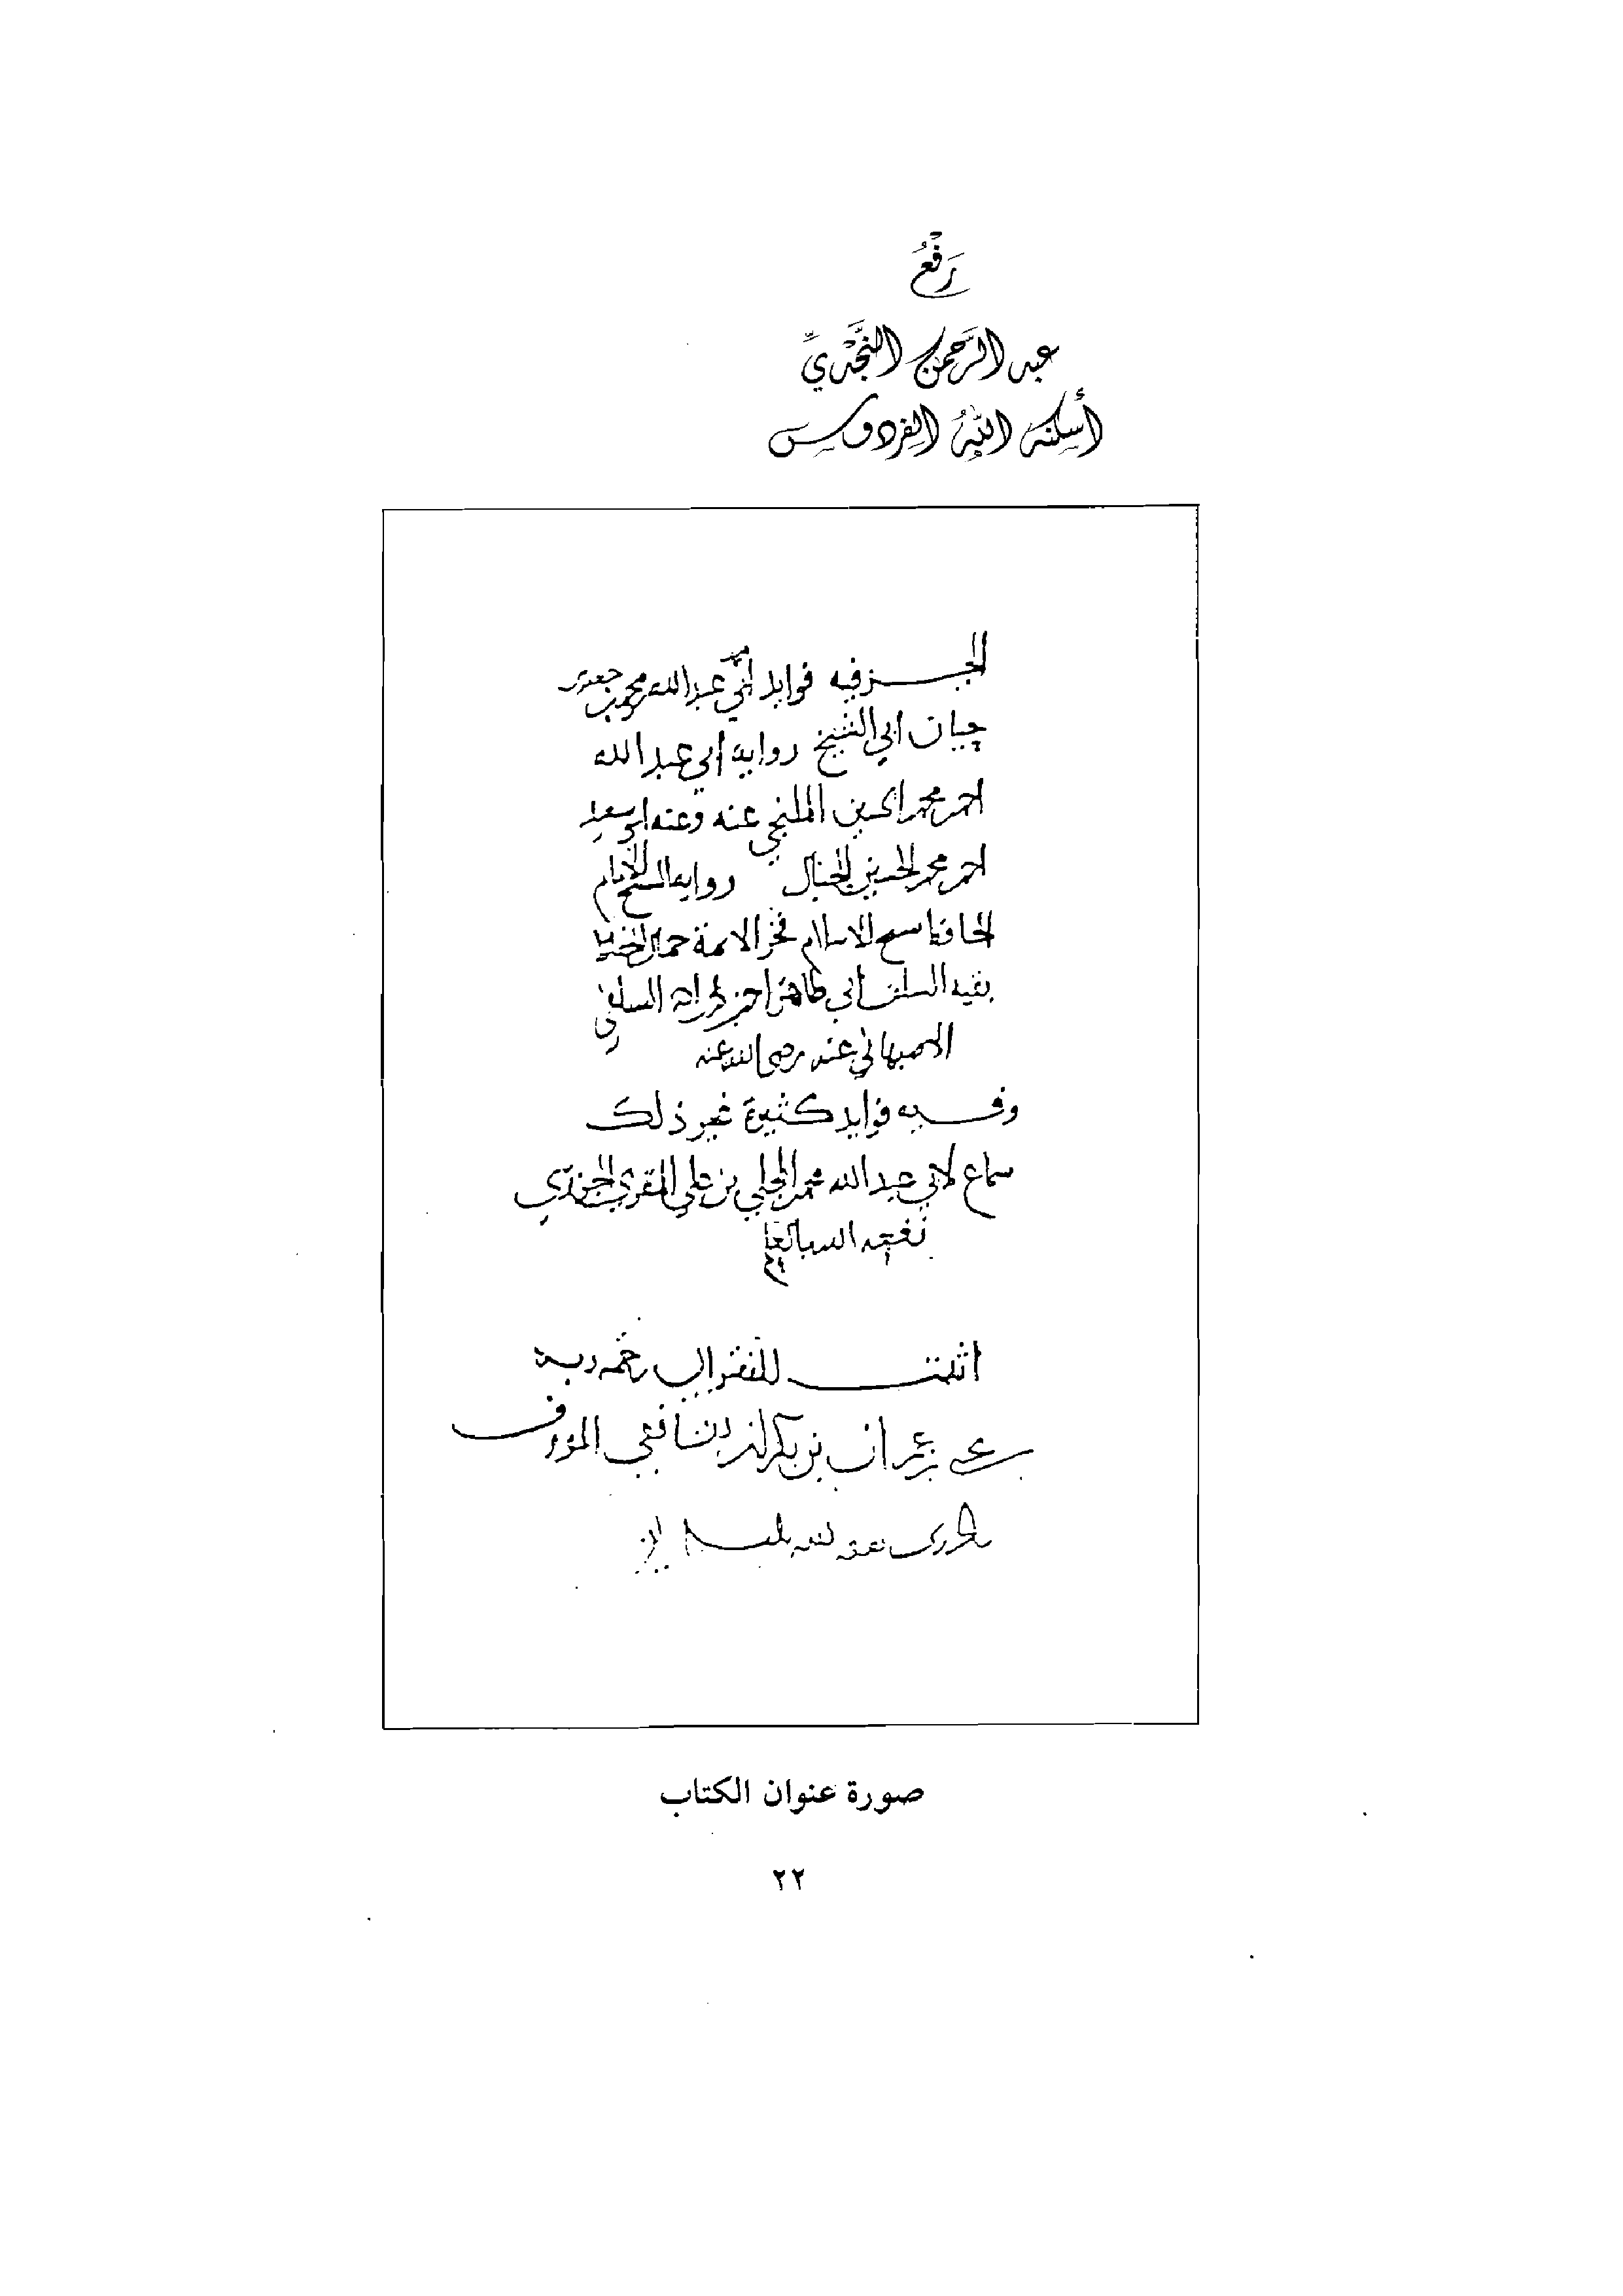 رَفْعُ
عبد الرَّحمن النَّجْدِيِّ
أسكنه اللهُ الفردوس
الجز فيه فوايد أبي عبد الله محمد بن جعفر بن
حيان ابي الشيخ رواية ابي عبد الله
احمد محمد الحسين الملنجي عنه وعنه ابو سعيد
احمد محمد الحسين رواية الشيخ الامام
الحافظ شيخ الاسلام فخر الايمة جمال الحفاظ
بقية السلف أبي طاهر احمد السلفي
الاصبهاني عنه رضي الله عنه
وفيه فوايد كثيرة غير ذلك
سماع لابي عبد الله محمد المجلي بن علي المقري
نفعه الله بالعلم
للفقير الى رحمة ربه
بن عمران بن بكر الشافعي المعروف
عفى الله
صورة عنوان الكتاب
٢٢